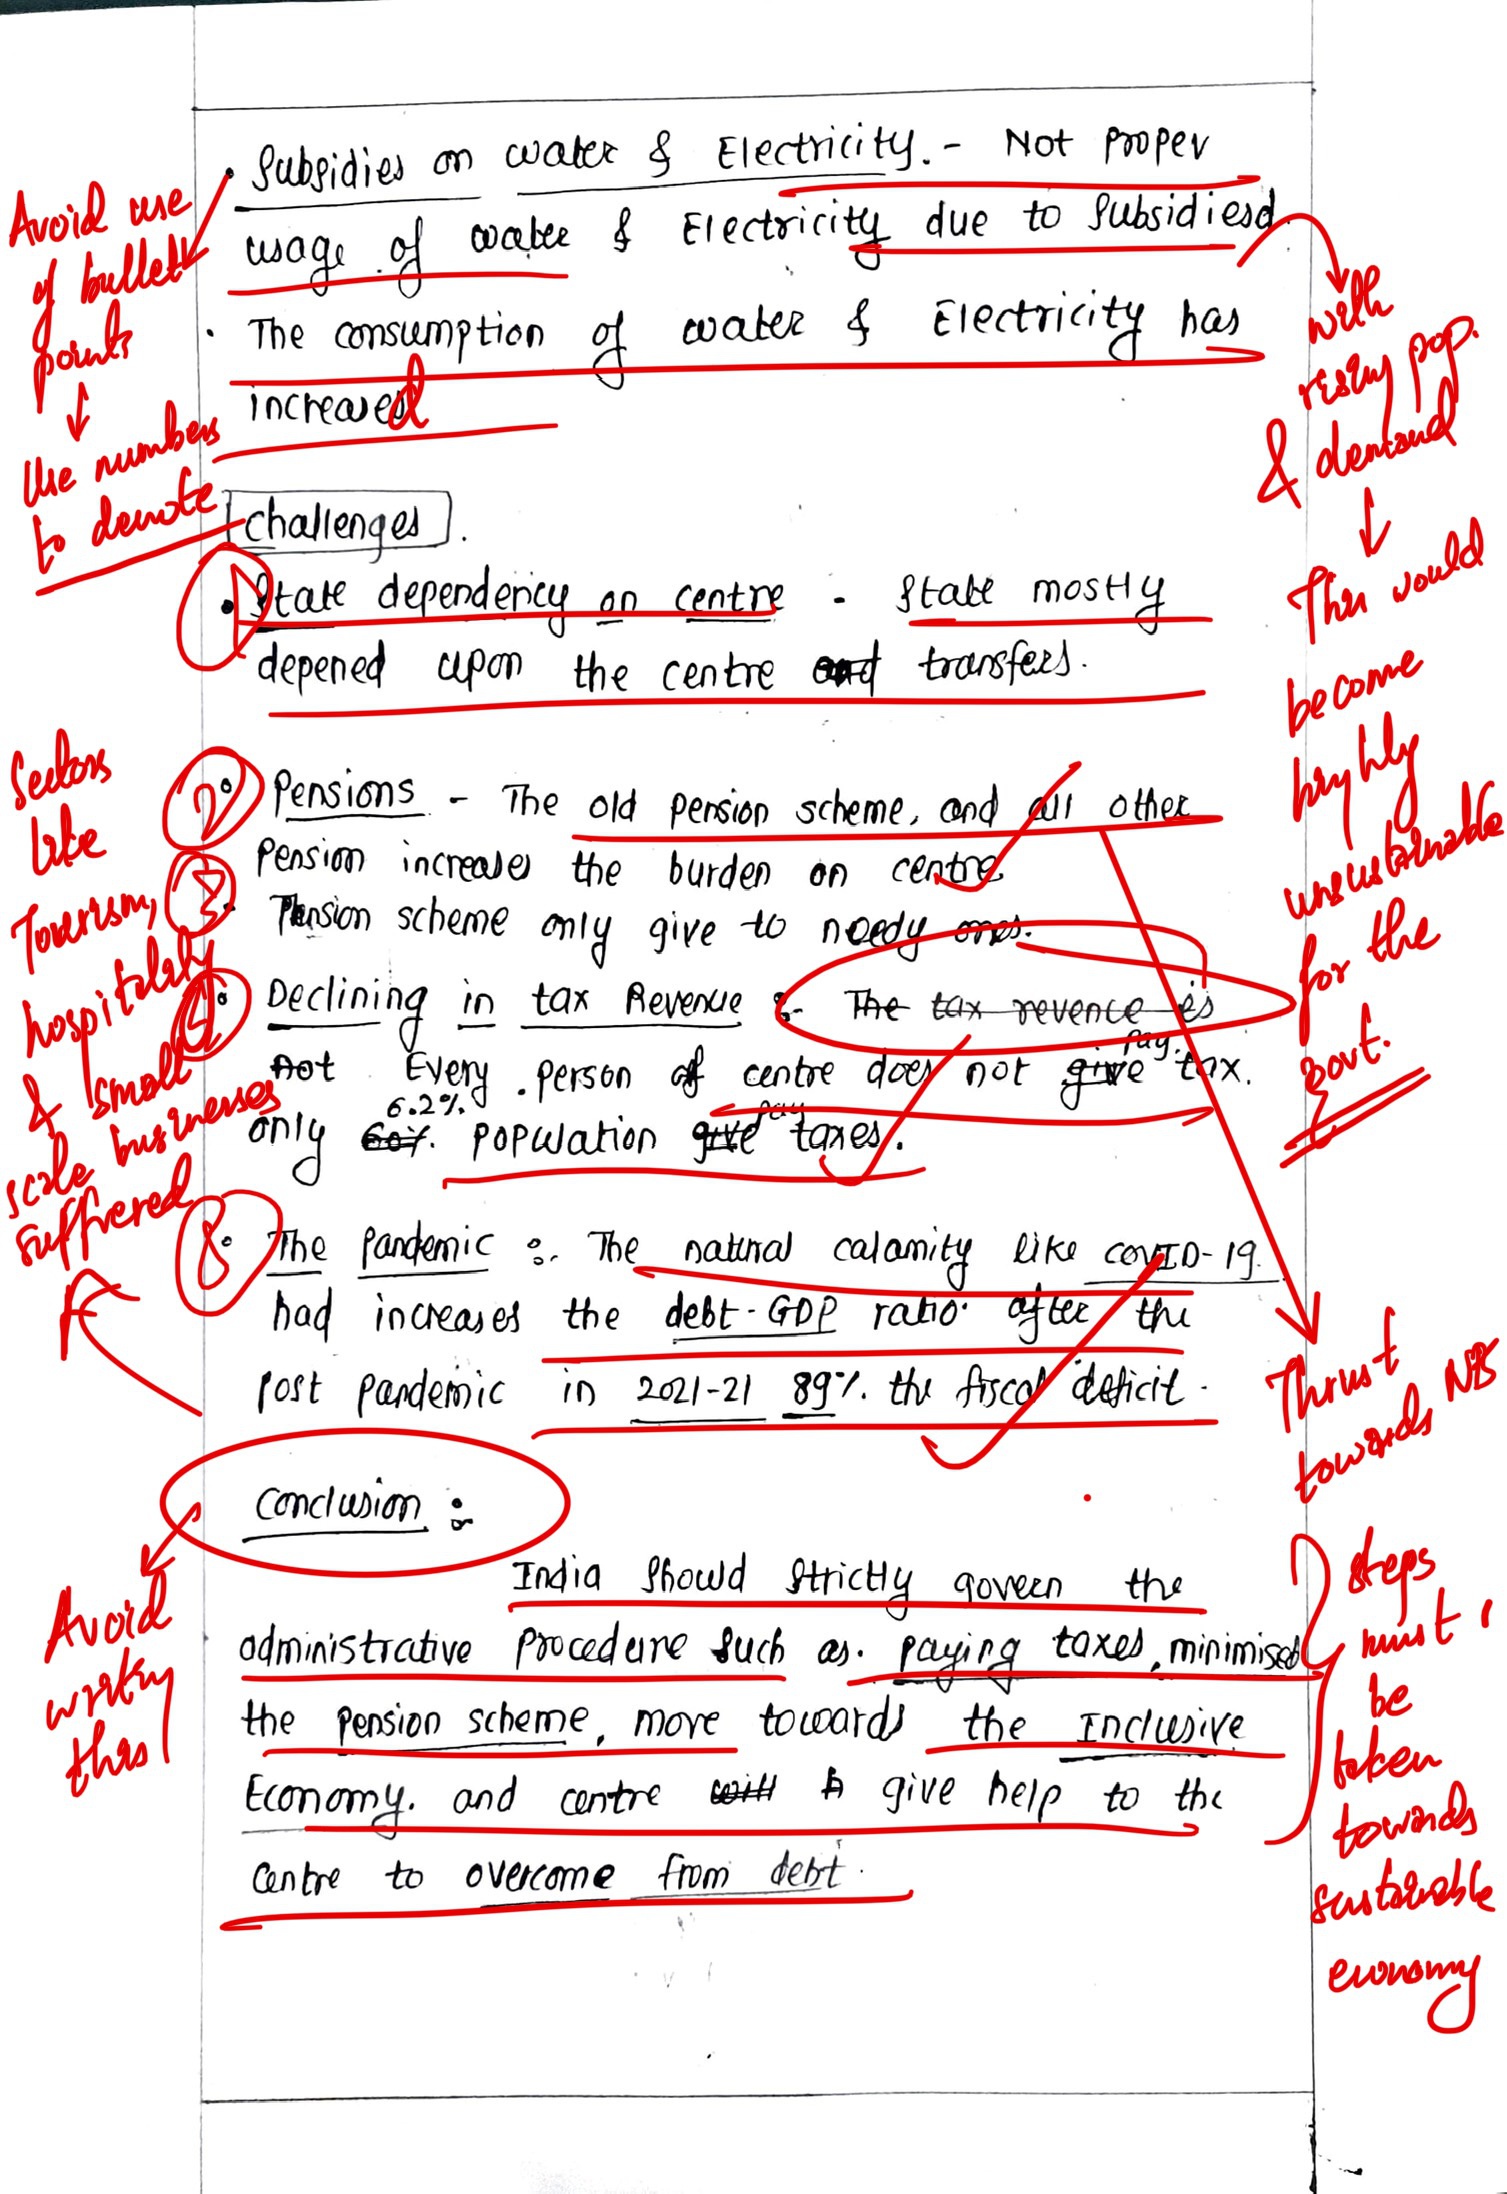 • Subsidies on water & Electricity. - Not proper
usage of water & Electricity due to Subsidiesd
• The consumption of water & Electricity has
increased
Challenges.
• State dependency on centre - State mostly
depened upon the centre and transfers.
Pensions - The old pension scheme, and all other
Pension increases the burden on centre
Pension scheme only give to needy ones.
Declining in tax Revenue :- The tax revence is
not Every person of centre does not give pay tax.
only 60% 6.2% population give pay taxes.
The pandemic :- The natural calamity like COVID-19
had increases the debt-GDP ratio after the
post pandemic in 2021-21 89% the fiscal deficit.
Conclusion :
India Should Strictly govern the
administrative procedure such as. paying taxes, minimised
the pension scheme, move towards the Inclusive
Economy. and centre will give help to the
centre to overcome from debt.
Avoid use
of bullet
points
↓
Use numbers
to denote
1
2
3
Sectors
like
Tourism,
hospitality
& small
scale businesses
suffered
Avoid
writing
this
with
rising pop.
& demand
↓
This would
become
highly
unsustainable
for the
govt.
Thrust
towards NPS
steps
must
be
taken
towards
sustainable
economy